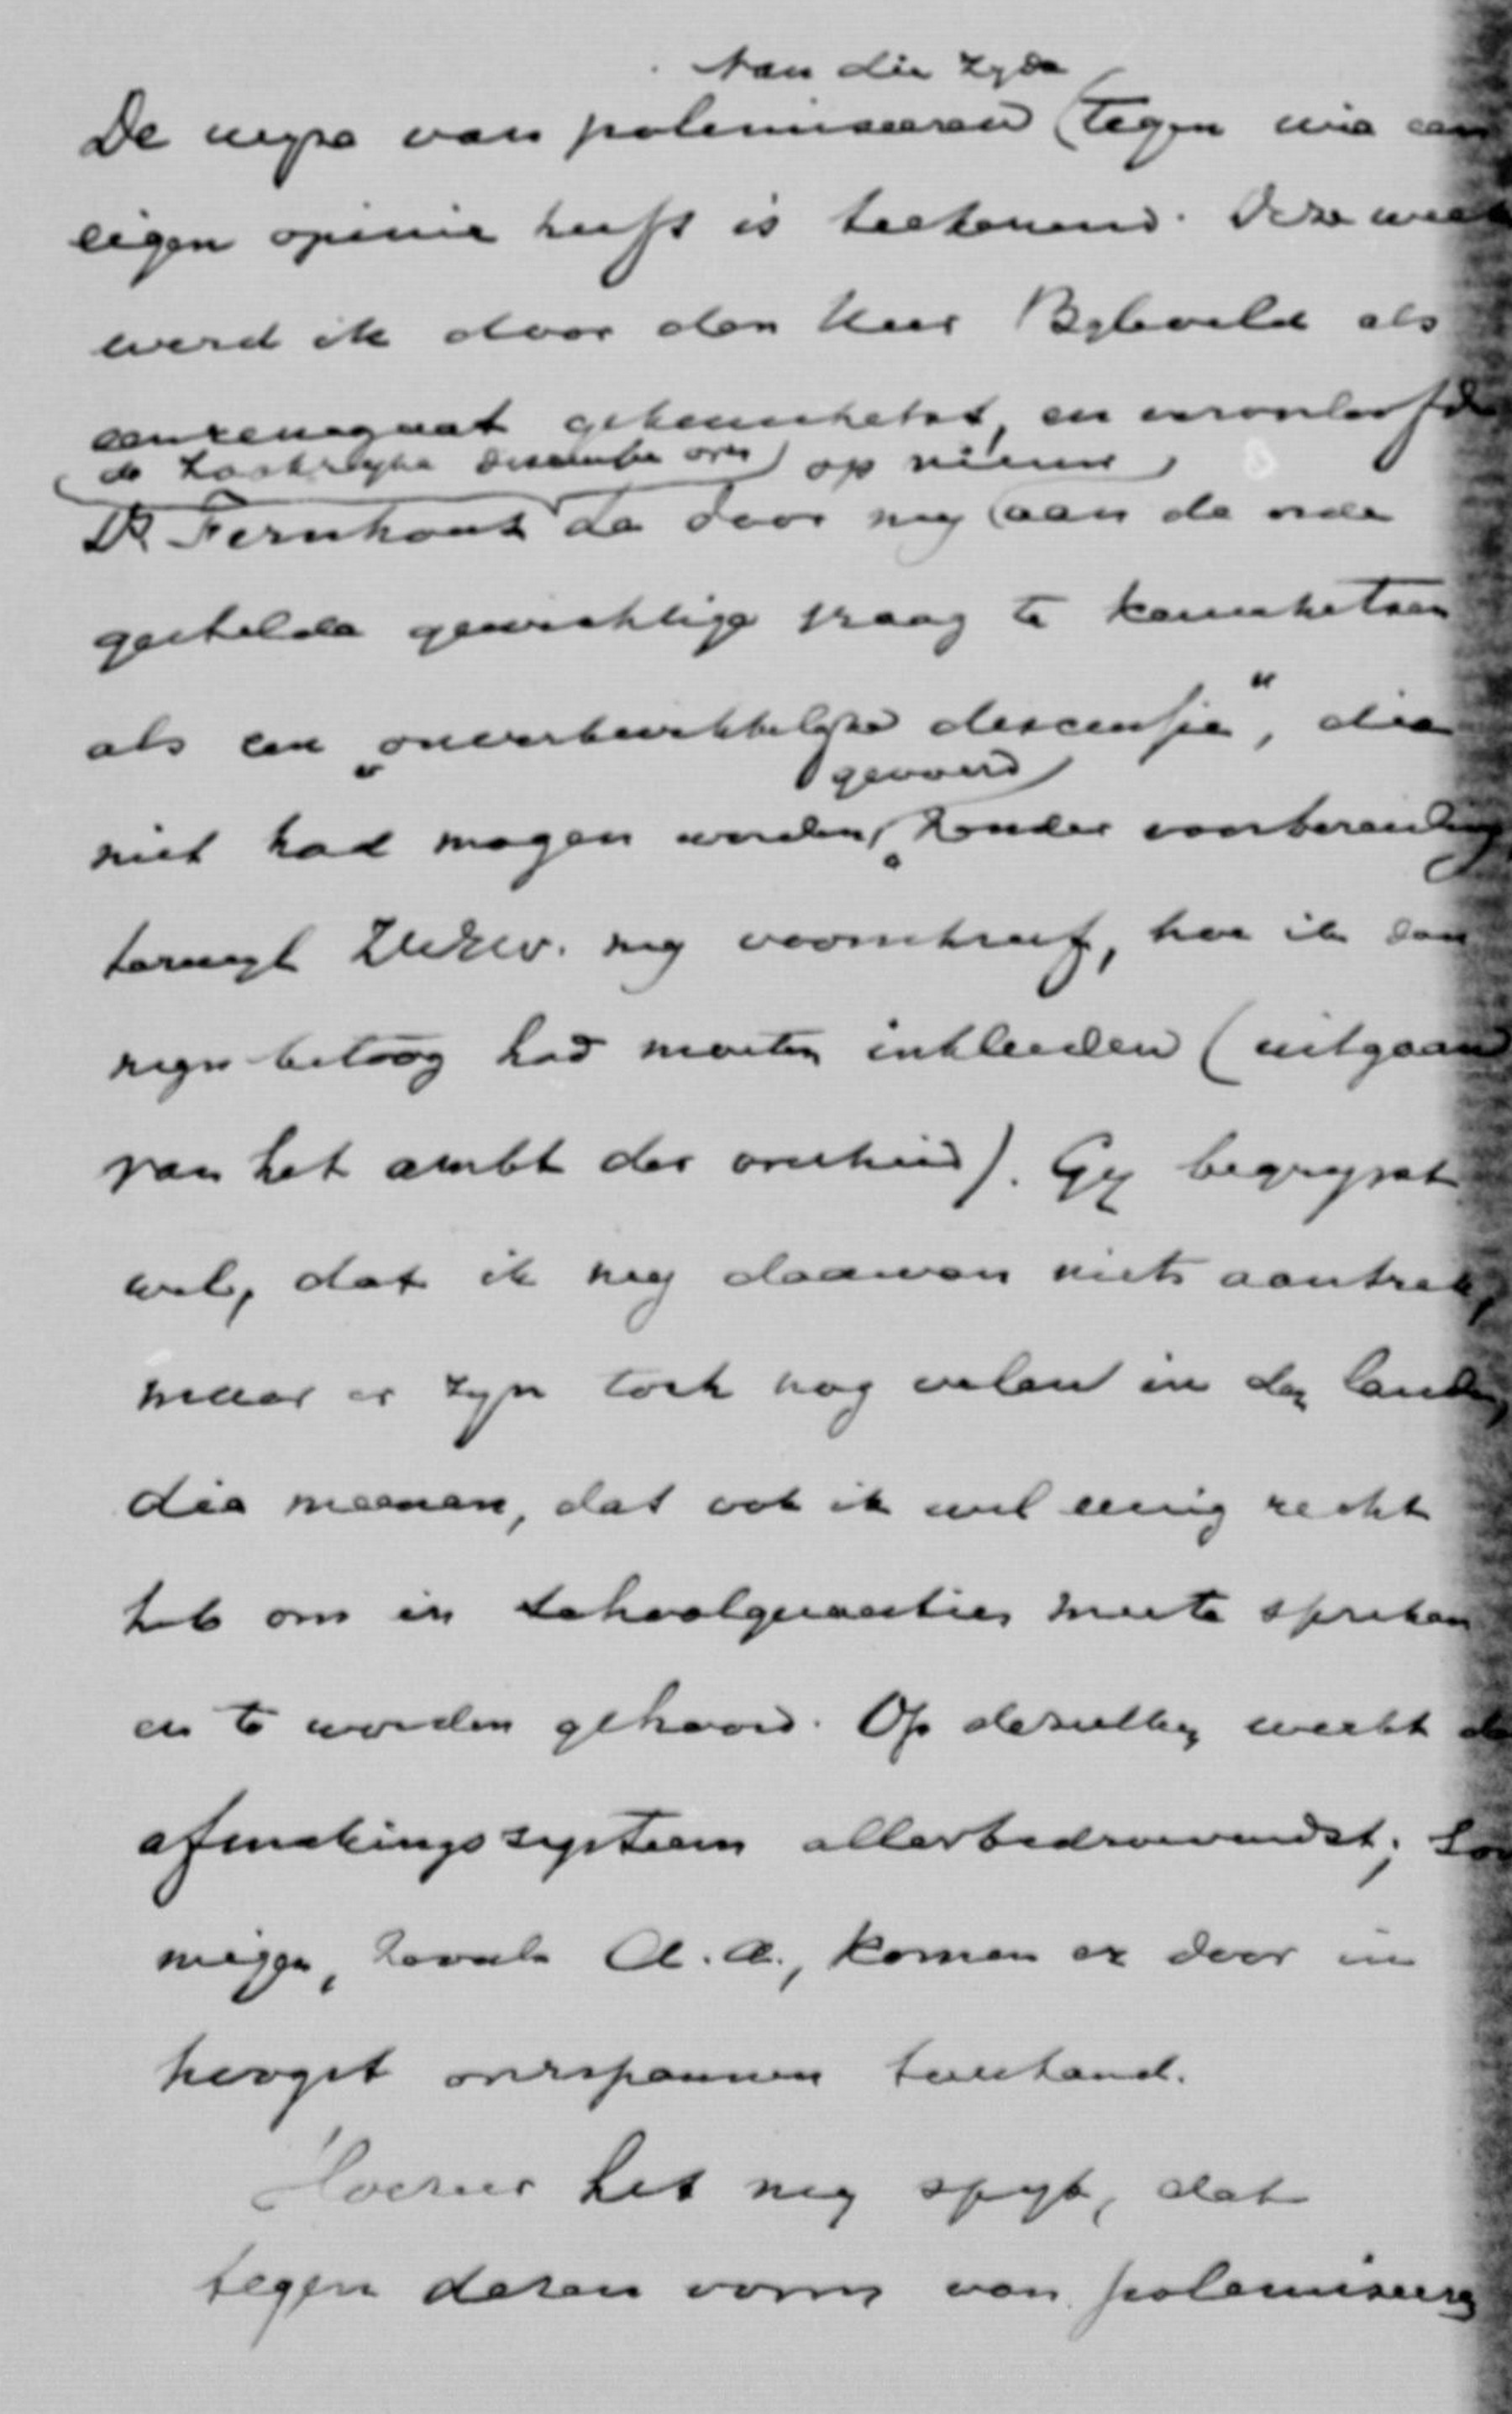 van die zyde
De wyze van polemiseeren tegen wie een
eigen opinie heeft is teekenend. Deze week
werd ik door den Heer Byleveld als
gekenschetst, en veroorloofde
de discussie over op nieuw
Dr Fernhout de door my aan de orde
gestelde gewichtige vraag te kenschetsen
als een „onverkwikkelyke discussie", die
gevoerd
niet had mogen worden, zonder voorbereiding
terwyl ZWEw. my voorschreef, hoe ik dan
myn betoog had moeten inkleeden (uitgaand
van het ambt der overheid). Gy begrypt
wel, dat ik my daarvan niets aantrek,
maar er zyn toch nog velen in den lande,
die meenen, dat ook ik wel eenig recht
heb om in schoolquaesties mee te spreken
en te worden gehoord. Op dezulken werkt dit
afmakingssysteem allerbedroevendst; som
migen, zooals A. A., komen er door in
hoogst overspannen toestand.
Hoezeer het my spyt, dat
tegen dezen vorm van polemiseeren